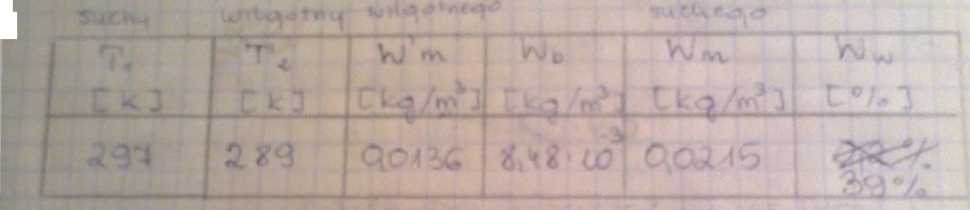 suchy wilgotny wilgotnego suchego
T₁ T₂ W'm Wb Wm Ww
[K] [K] [kg/m³] [kg/m³] [kg/m³] [%]
297 289 0,0136 8,48·10⁻³ 0,0215
39%